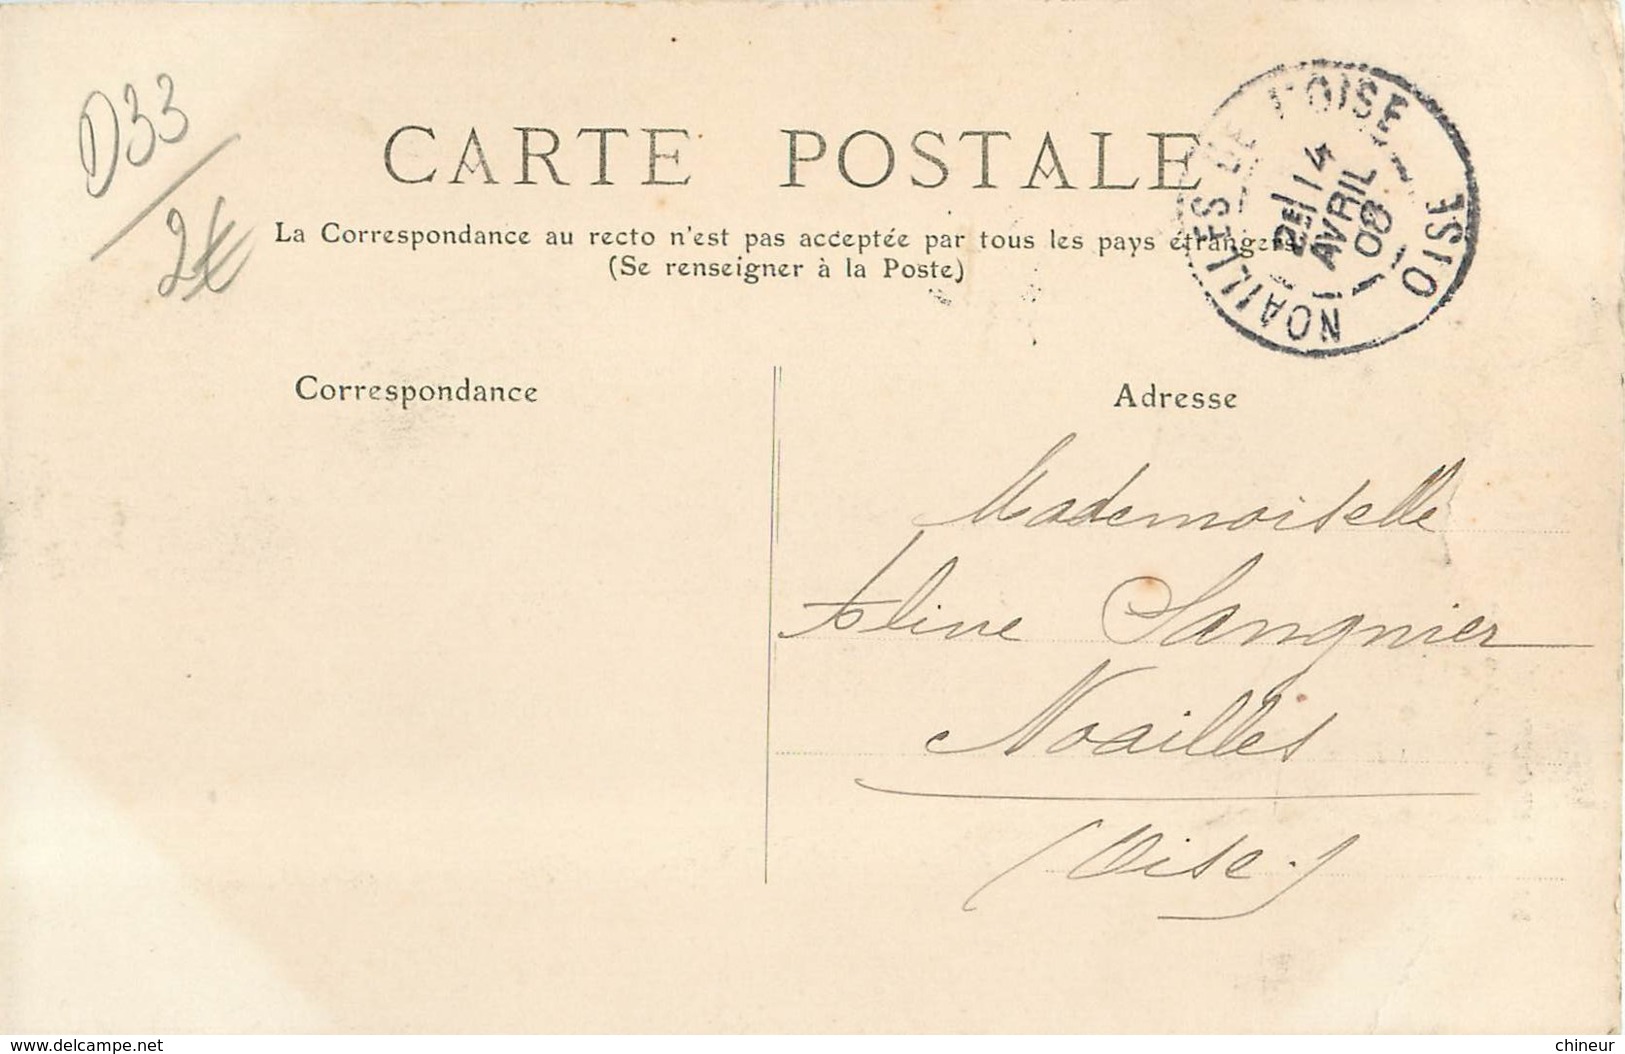 D33
2€
CARTE POSTALE
La Correspondance au recto n'est pas acceptée par tous les pays étrangers
(Se renseigner à la Poste)
NOAILLES DE L'OISE OISE
2E 14
AVRIL
08
Correspondance
Adresse
Mademoiselle
Aline Sangnier
Noailles
(Oise.)
www.delcampe.net
chineur